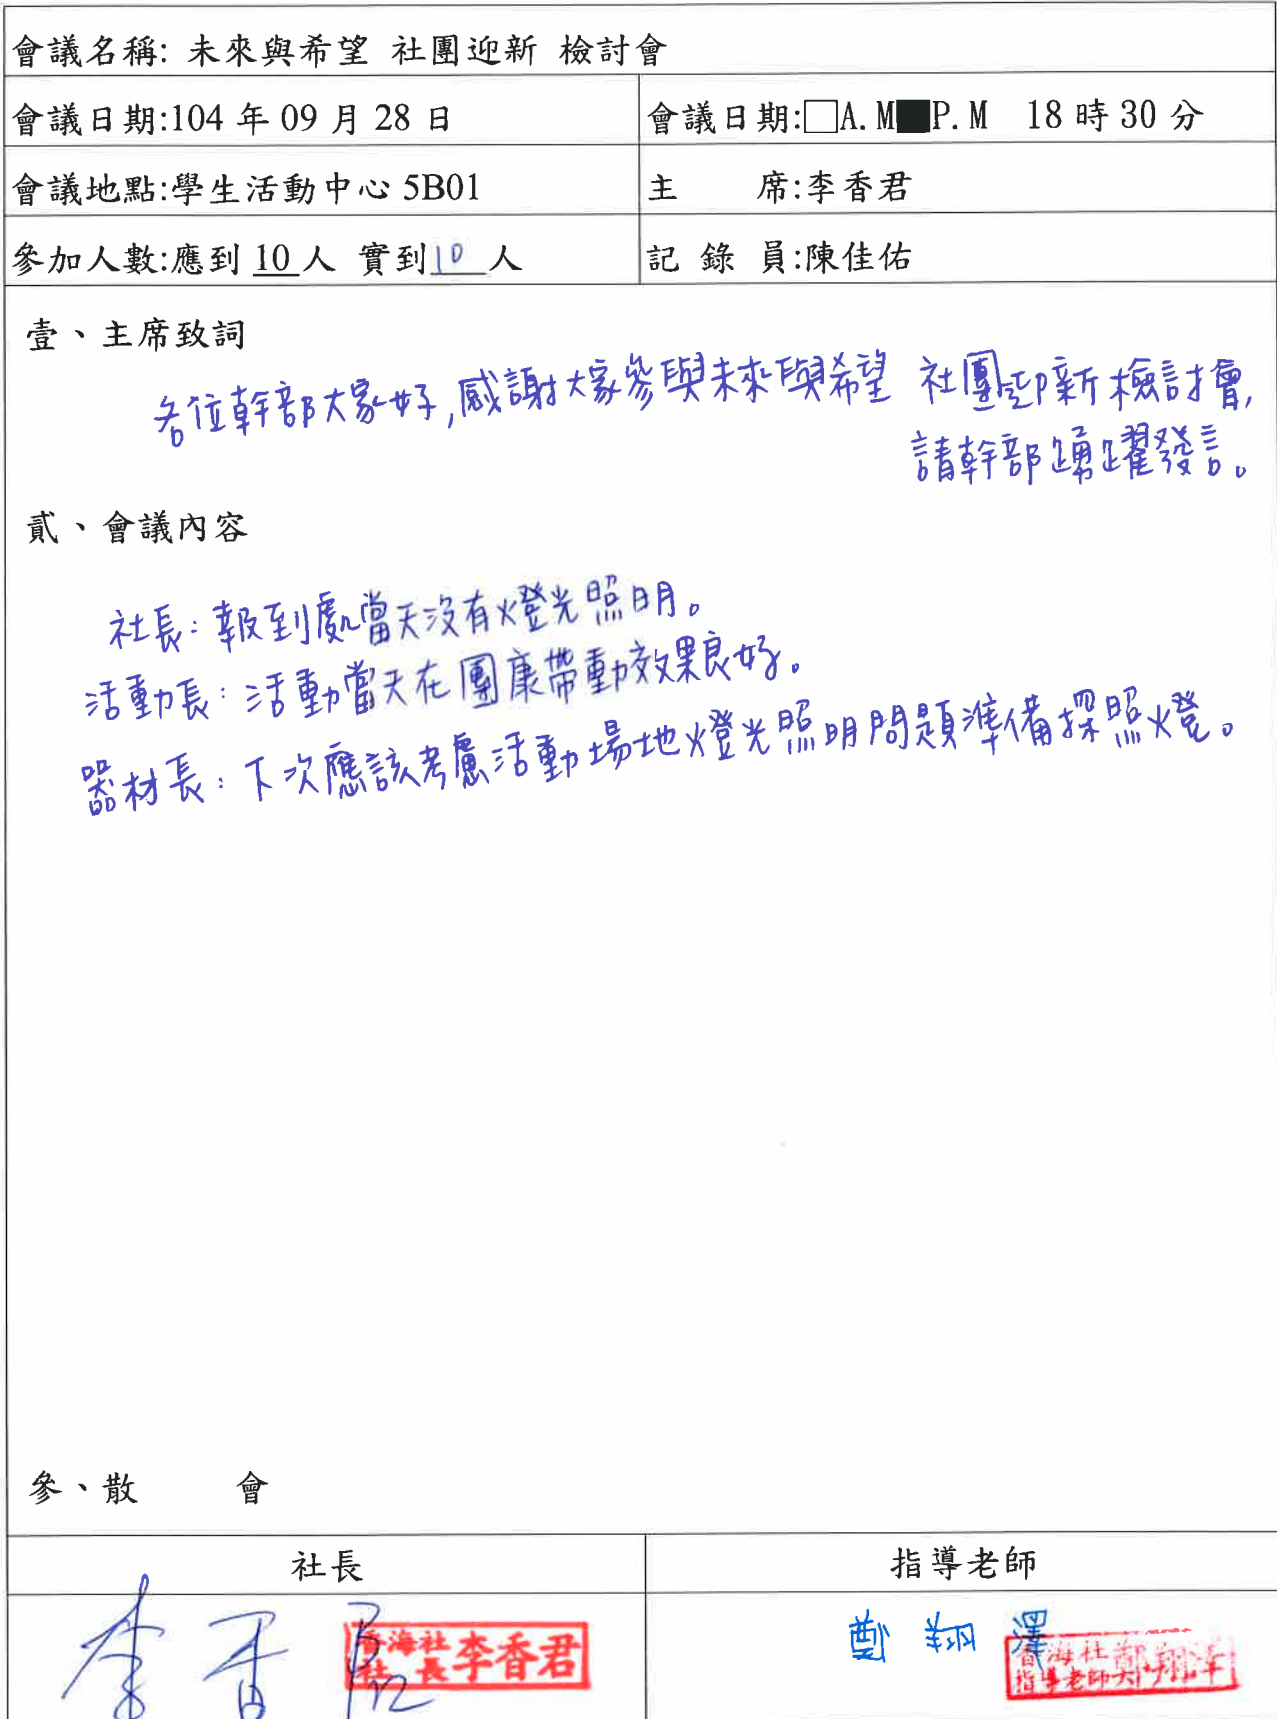 會議名稱: 未來與希望 社團迎新 檢討會
會議日期:104 年 09 月 28 日
會議日期:□A.M■P.M 18 時 30 分
會議地點:學生活動中心 5B01
主 席:李香君
參加人數:應到 10 人 實到 10 人
記 錄 員:陳佳佑
壹、主席致詞
各位幹部大家好,感謝大家參與未來與希望 社團迎新檢討會,
請幹部踴躍發言。
貳、會議內容
社長:報到處當天沒有燈光照明。
活動長:活動當天在團康帶動效果良好。
器材長:下次應該考慮活動場地燈光照明問題準備探照燈。
參、散 會
社長
指導老師
李香君
香海社
社長 李香君
鄭翔澤
香海社
指導老師 鄭翔澤